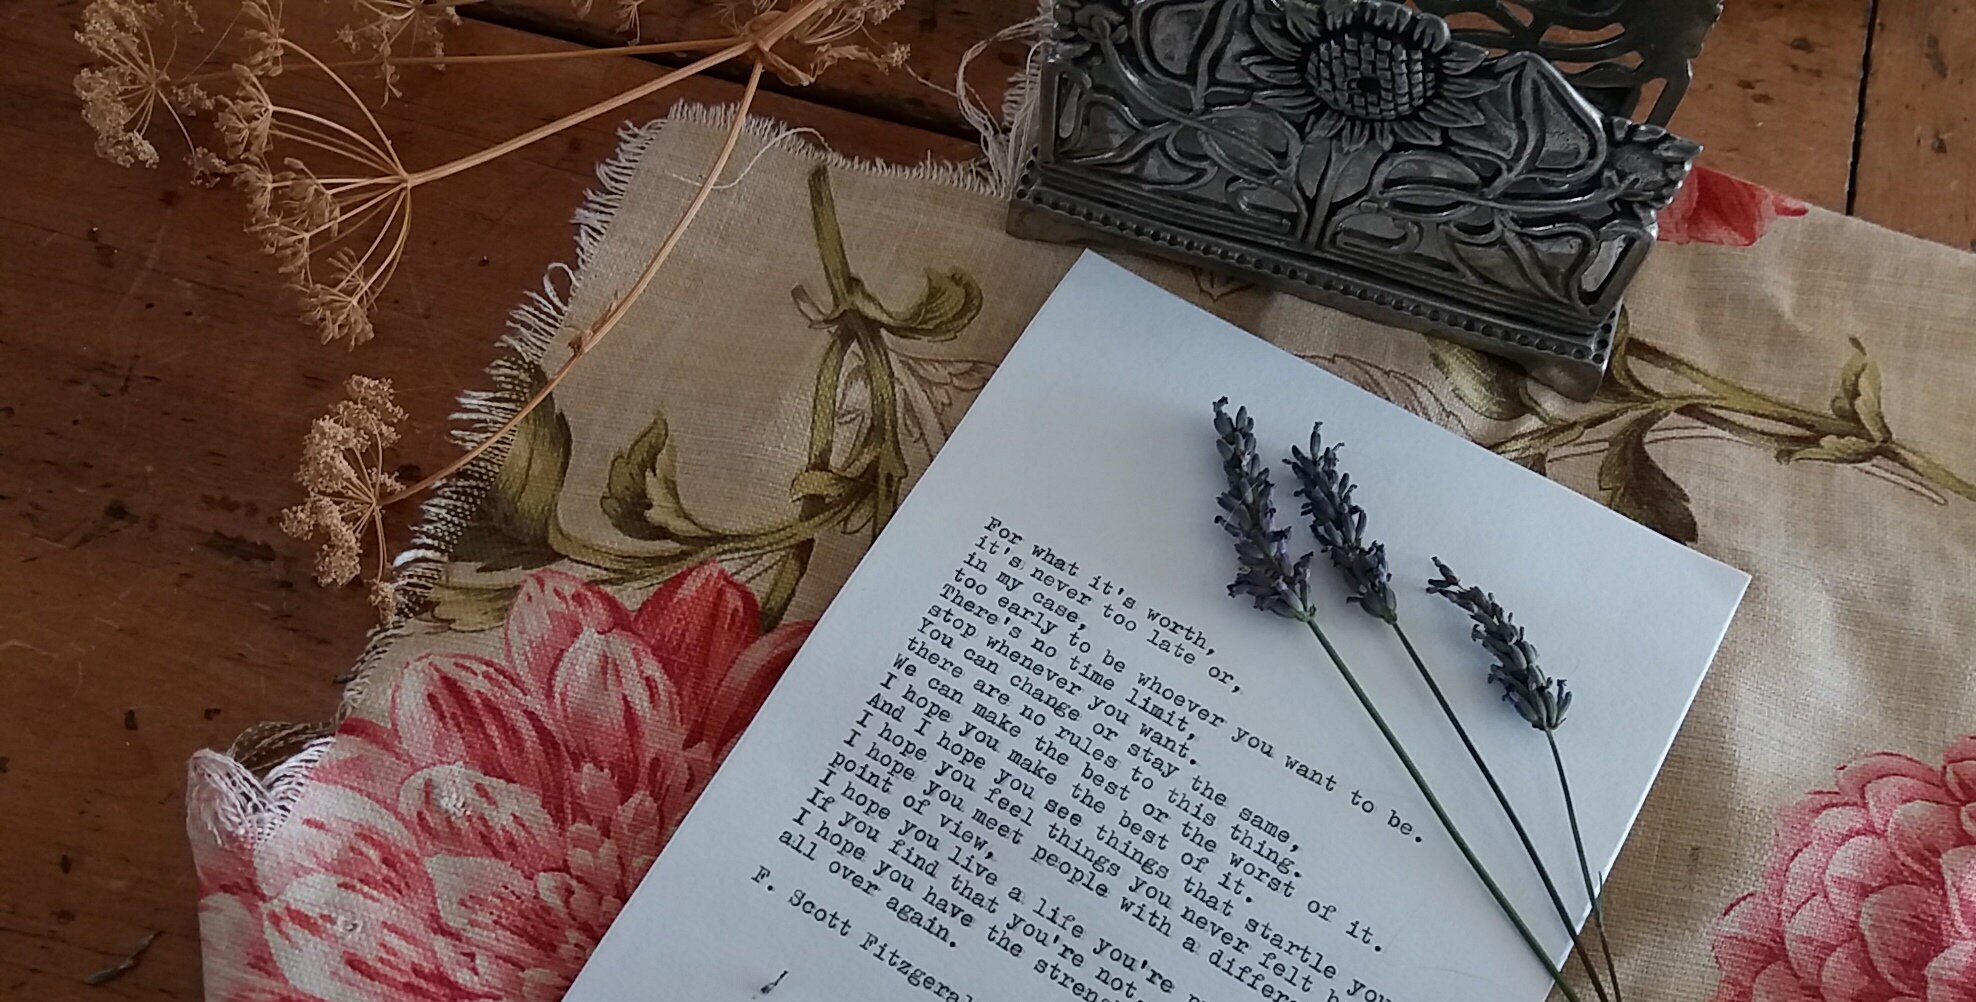 For what it's worth,
it's never too late or,
in my case,
too early to be whoever you want to be.
There's no time limit,
stop whenever you want.
You can change or stay the same,
there are no rules to this thing.
We can make the best or the worst of it.
I hope you make the best of it.
And I hope you see things that startle you
I hope you feel things you never felt
I hope you meet people with a
point of view,
I hope you live a life you're
If you find that you're not,
I hope you have the
all over again.
F. Scott